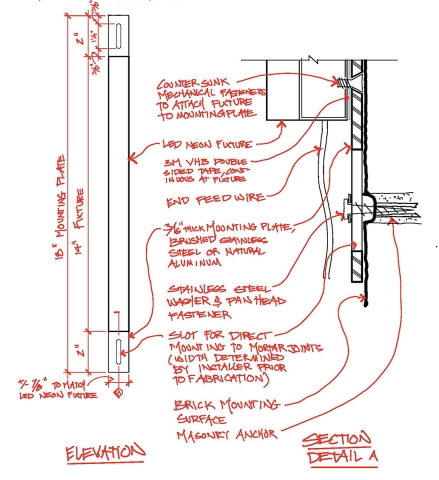 2"
1¼"
18" MOUNTING PLATE
14" FIXTURE
2"
+/- 7/8" TO MATCH
LED NEON FIXTURE
A
ELEVATION
COUNTER SINK
MECHANICAL FASTENERS
TO ATTACH FIXTURE
TO MOUNTING PLATE
LED NEON FIXTURE
3M VHB DOUBLE
SIDED TAPE, CONT-
INUOUS AT FIXTURE
END FEED WIRE
3/16" THICK MOUNTING PLATE,
BRUSHED STAINLESS
STEEL OR NATURAL
ALUMINUM
STAINLESS STEEL
WASHER & PAN HEAD
FASTENER
SLOT FOR DIRECT
MOUNTING TO MORTAR JOINTS
(WIDTH DETERMINED
BY INSTALLER PRIOR
TO FABRICATION)
BRICK MOUNTING
SURFACE
MASONRY ANCHOR
SECTION
DETAIL A